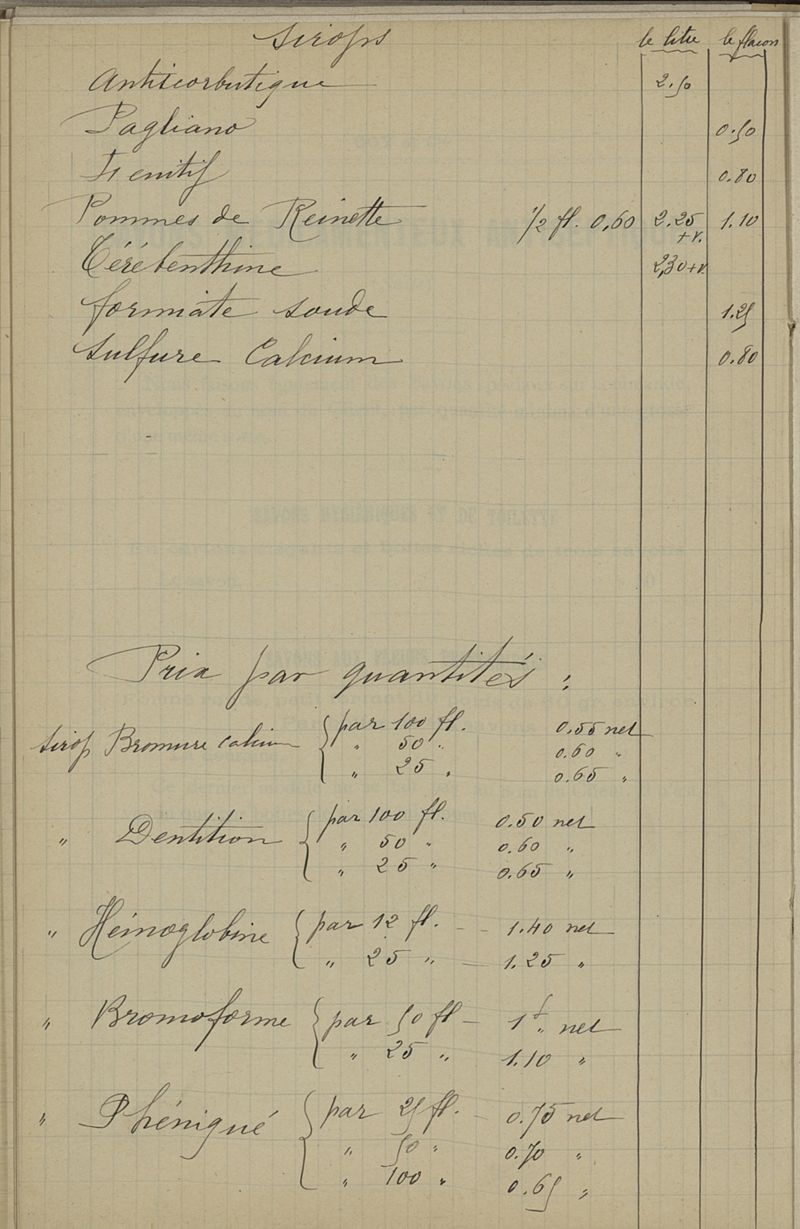 Sirops le litre le flacon
Antiscorbutique 2.50
Pagliano 0.50
Lenitif 0.80
Pommes de Reinette 1/2 fl. 0,60 2.25 + v. 1.10
Térébenthine 2,30 + v.
formiate soude 1.25
Sulfure Calcium 0.80
Prix par quantités :
Sirop Bromure Calcium { par 100 fl. 0.55 net
" 50 " 0.60 "
" 25 " 0.65 "
" Dentition { par 100 fl. 0.50 net
" 50 " 0.60 "
" 25 " 0.65 "
" Hémoglobine { par 12 fl. — 1.40 net
" 25 " — 1.25 "
" Bromoforme { par 50 fl — 1f " net
" 25 " 1.10 "
" Phéniqué { par 25 fl. — 0.75 net
" 50 " 0.70 "
" 100 " 0.65 "